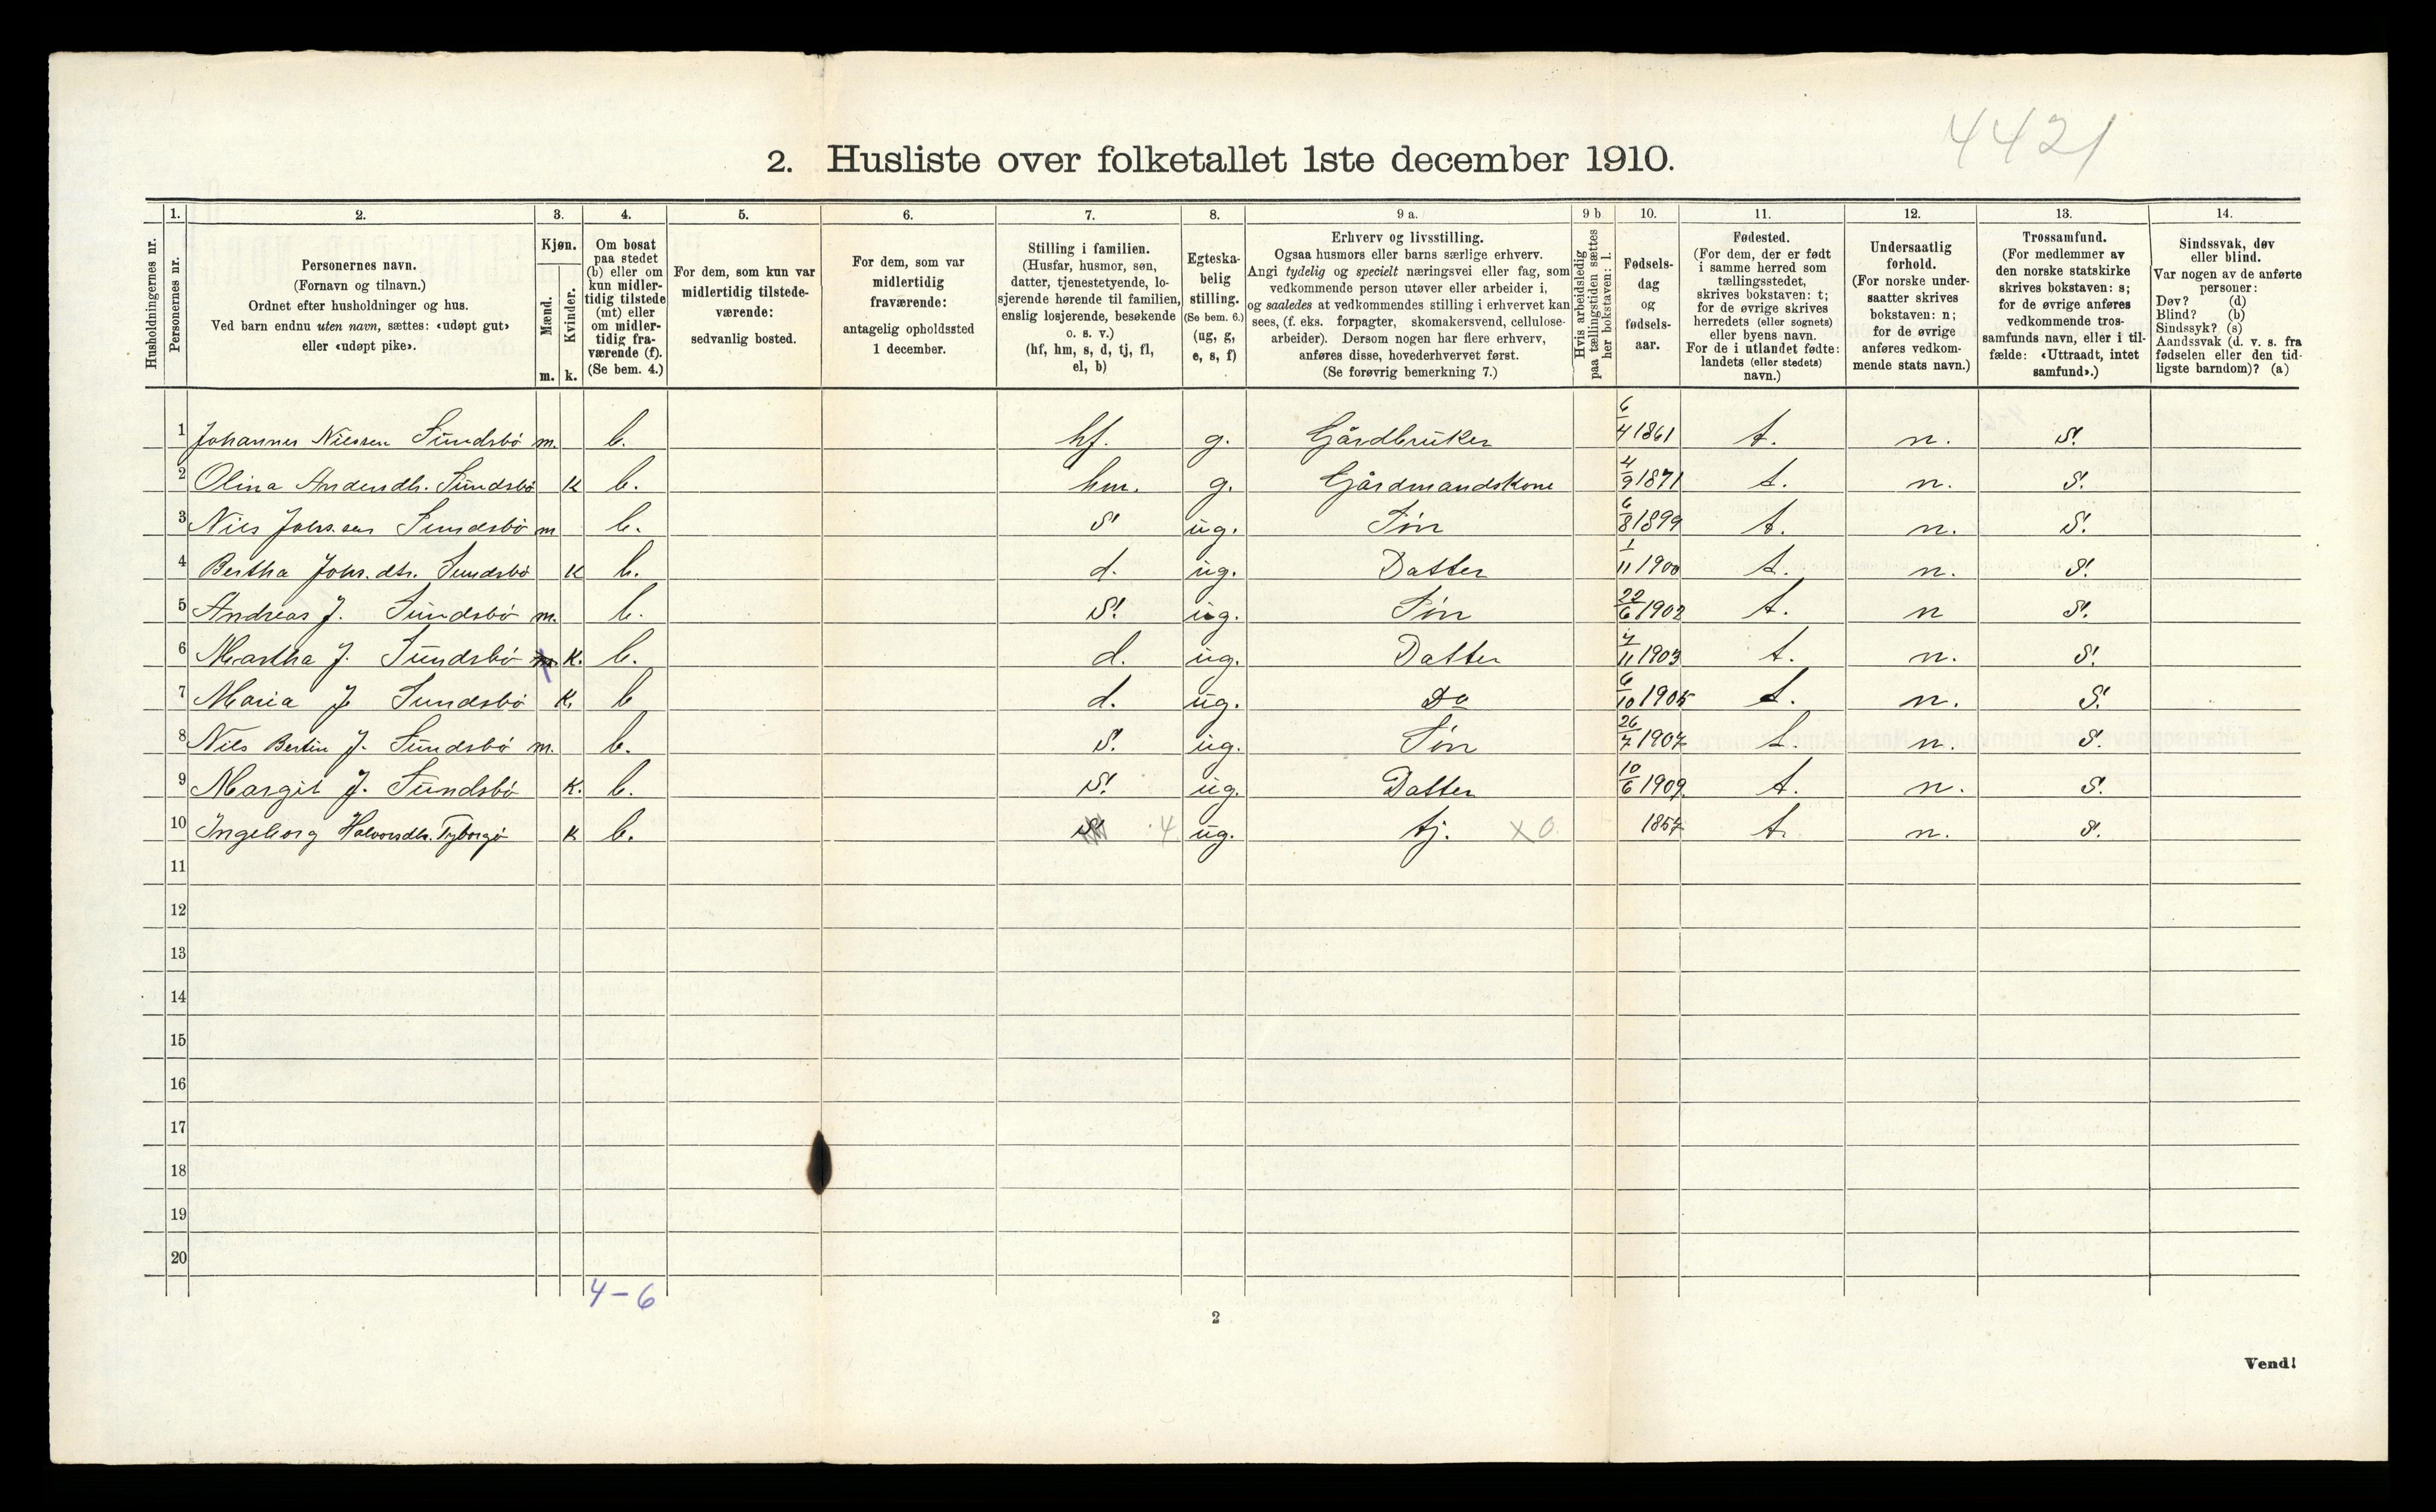 4421
2. Husliste over folketallet 1ste december 1910.
1. 2. 3. 4. 5. 6. 7. 8. 9 a. 9 b 10. 11. 12. 13. 14.
Husholdningernes nr.
Personernes nr.
Personernes navn.
(Fornavn og tilnavn.)
Ordnet efter husholdninger og hus.
Ved barn endnu uten navn, sættes: «udøpt gut»
eller «udøpt pike».
Kjøn.
Mænd.
Kvinder.
m. k.
Om bosat
paa stedet
(b) eller om
kun midler-
tidig tilstede
(mt) eller
om midler-
tidig fra-
værende (f).
(Se bem. 4.)
For dem, som kun var
midlertidig tilstede-
værende:
sedvanlig bosted.
For dem, som var
midlertidig
fraværende:
antagelig opholdssted
1 december.
Stilling i familien.
(Husfar, husmor, søn,
datter, tjenestetyende, lo-
sjerende hørende til familien,
enslig losjerende, besøkende
o. s. v.)
(hf, hm, s, d, tj, fl,
el, b)
Egteska-
belig
stilling.
(Se bem. 6.)
(ug, g,
e, s, f)
Erhverv og livsstilling.
Ogsaa husmors eller barns særlige erhverv.
Angi tydelig og specielt næringsvei eller fag, som
vedkommende person utøver eller arbeider i,
og saaledes at vedkommendes stilling i erhvervet kan
sees, (f. eks. forpagter, skomakersvend, cellulose-
arbeider). Dersom nogen har flere erhverv,
anføres disse, hovederhvervet først.
(Se forøvrig bemerkning 7.)
Hvis arbeidsledig
paa tællingstiden sættes
her bokstaven: l.
Fødsels-
dag
og
fødsels-
aar.
Fødested.
(For dem, der er født
i samme herred som
tællingsstedet,
skrives bokstaven: t;
for de øvrige skrives
herredets (eller sognets)
eller byens navn.
For de i utlandet fødte:
landets (eller stedets)
navn.)
Undersaatlig
forhold.
(For norske under-
saatter skrives
bokstaven: n;
for de øvrige
anføres vedkom-
mende stats navn.)
Trossamfund.
(For medlemmer av
den norske statskirke
skrives bokstaven: s;
for de øvrige anføres
vedkommende tros-
samfunds navn, eller i til-
fælde: «Uttraadt, intet
samfund».)
Sindssvak, døv
eller blind.
Var nogen av de anførte
personer:
Døv? (d)
Blind? (b)
Sindssyk? (s)
Aandssvak (d. v. s. fra
fødselen eller den tid-
ligste barndom)? (a)
1 Johannes Nilssen Sundsbø m. b. hf. g. Gårdbruker 6/4 1861 t. n. S.
2 Olina Andersdtr. Sundsbø K b. hm. g. Gårdmandskone 4/9 1871 t. n. S.
3 Nils Johs.sen Sundsbø m b. S ug. Søn 6/8 1899 t. n. S.
4 Bertha Johs.dtr. Sundsbø K b. d. ug. Datter 1/11 1900 t. n. S.
5 Andreas J. Sundsbø m. b. S. ug. Søn 22/6 1902 t. n S.
6 Martha J. Sundsbø m. K. b. d. ug. Datter 7/11 1903 t. n. S.
7 Maria J Sundsbø K. b d. ug. Do 6/10 1905 t. n. S.
8 Nils Bertin J. Sundsbø m. b. S. ug. Søn 26/7 1907 t. n. S.
9 Margit J. Sundsbø K. b. S. ug. Datter 10/6 1909. t. n. S.
10 Ingeborg Halvorsdtr. K b. 4 ug. tj. x 0. 1857 t. n. S.
11
12
13
14
15
16
17
18
19
20
4-6
2
Vend!